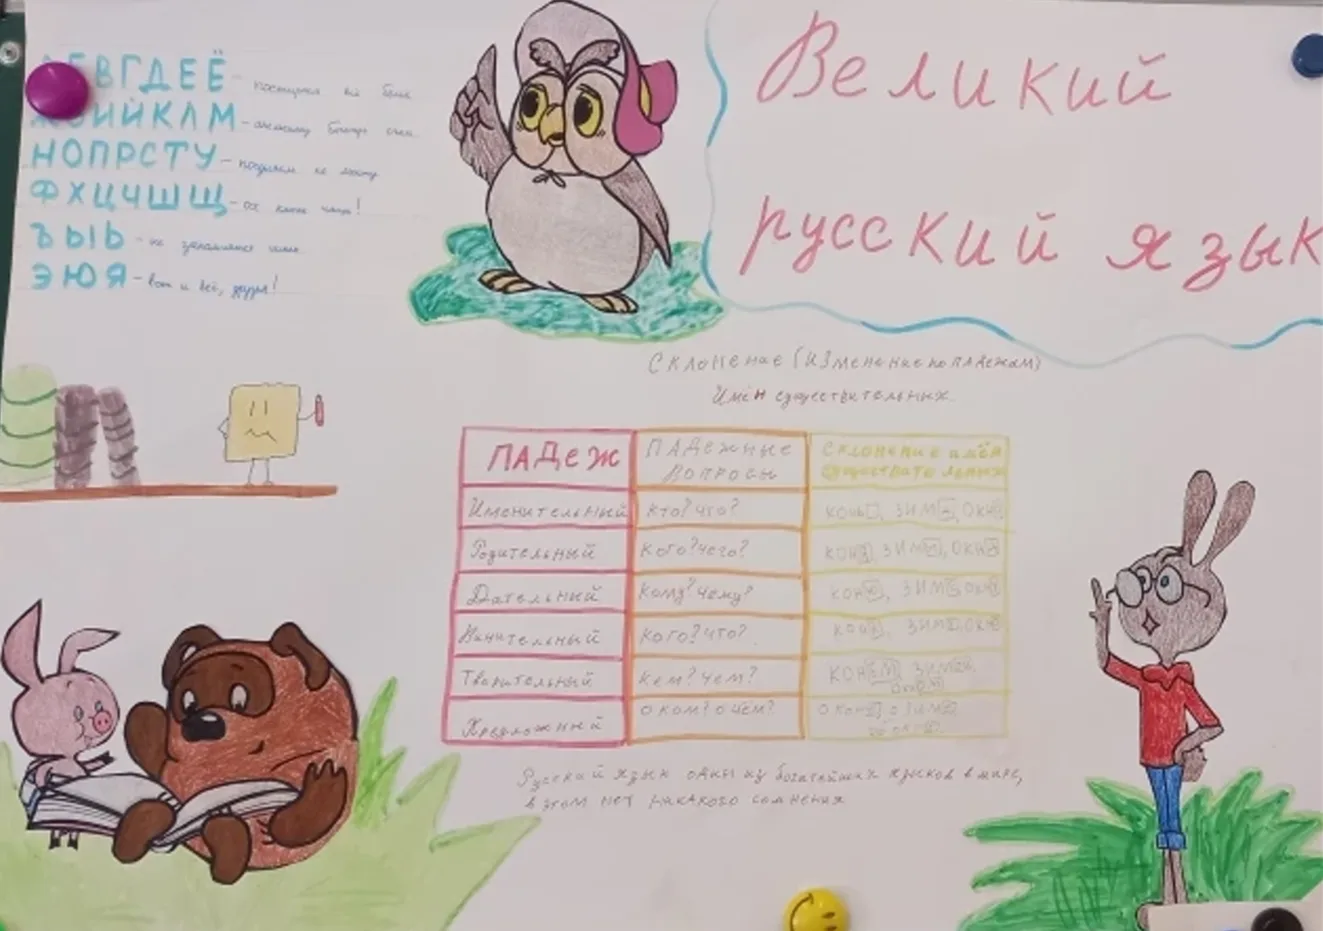 АБВГДЕЁ -
ЖЗИЙКЛМ -
НОПРСТУ -
ФХЦЧШЩ -
ЪЫЬ -
ЭЮЯ - вот и всё, друзья!
Великий
русский язык
Склонение (изменение по падежам)
имён существительных.
ПАДЕЖ ПАДЕЖНЫЕ ВОПРОСЫ СКЛОНЕНИЕ имён существительных
Именительный Кто? что? конь, зима, окно
Родительный Кого? чего? зимы, окна
Дательный Кому? чему? коню, зиме, окну
Кого? что?
Творительный Кем? чем? конём, зимой, окном
о ком? о чём? о коне, о зиме, об окне
Русский язык один из богатейших языков в мире,
в этом нет никакого сомнения